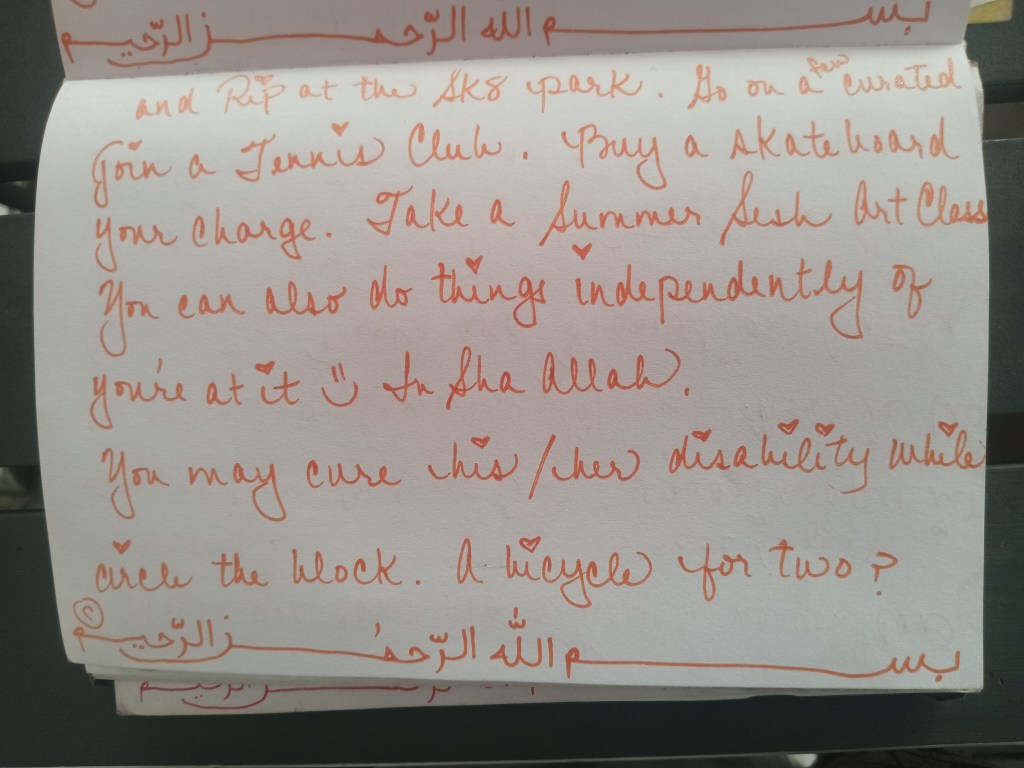 بســـم الله الرّحمــن الرّحيــم
and Rip at the Sk8 park. Go on a few curated
Join a Tennis Club. Buy a skateboard
your charge. Take a Summer Sesh Art Class
You can also do things independently of
you're at it In Sha Allah.
You may cure his/her disability while
circle the block. A bicycle for two?
بســـم اللّٰه الرّحمــن الرّحيــم